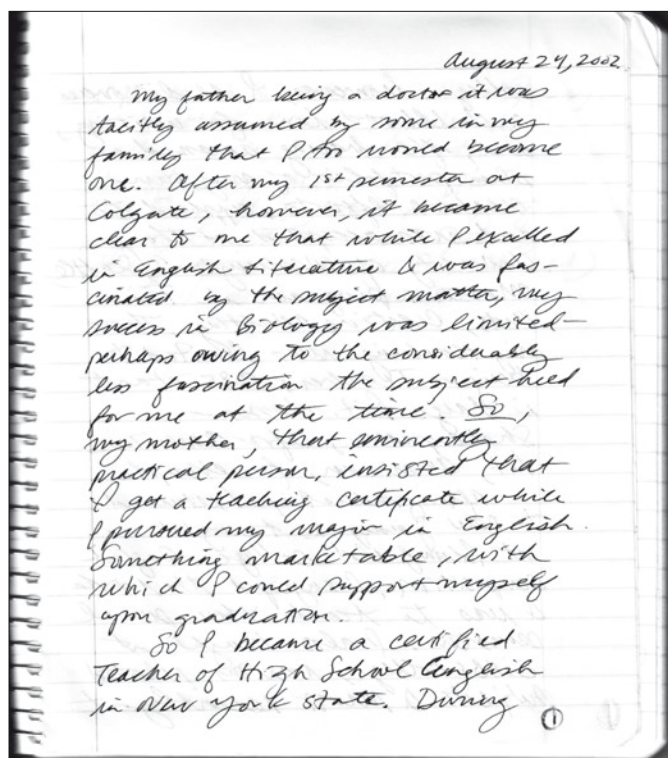 August 24, 2002
My father being a doctor it was
tacitly assumed by some in my
family that I too would become
one. After my 1st semester at
Colgate, however, it became
clear to me that while I excelled
in English Literature & was fas-
cinated by the subject matter, my
success in Biology was limited—
perhaps owing to the considerably
less fascination the subject held
for me at the time. So,
my mother, that eminently
practical person, insisted that
I get a teaching certificate while
I pursued my major in English.
Something marketable, with
which I could support myself
upon graduation.
So I became a certified
Teacher of High School English
in New York State. During
1